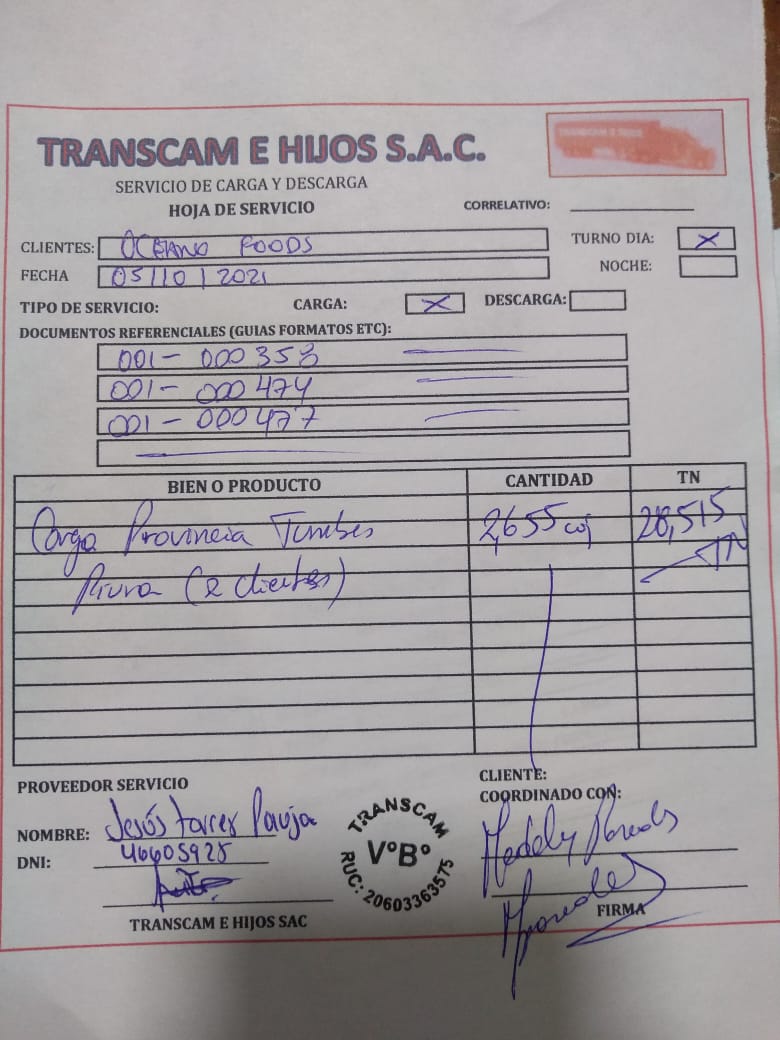 TRANSCAM E HIJOS S.A.C.
TRANSCAM E HIJOS
SERVICIO DE CARGA Y DESCARGA
HOJA DE SERVICIO
CORRELATIVO:
CLIENTES: OCEANO FOODS
TURNO DIA: X
FECHA 05/10/2021
NOCHE:
TIPO DE SERVICIO: CARGA: X DESCARGA:
DOCUMENTOS REFERENCIALES (GUIAS FORMATOS ETC):
001-000353
001-000474
001-000477
BIEN O PRODUCTO CANTIDAD TN
Carga Provincia Tumbes 2,655 coj 28,515
Piura (2 clientes) TN
PROVEEDOR SERVICIO
CLIENTE:
COORDINADO CON:
NOMBRE: Jesús Torres
DNI: 46605928
TRANSCAM
V°B°
RUC: 20603363575
FIRMA
TRANSCAM E HIJOS SAC